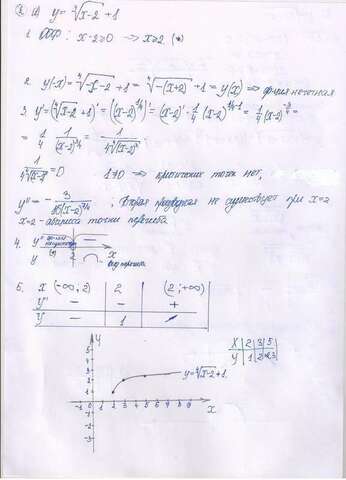 а) y = ⁴√(x-2) + 1
1. ООФ: x-2≥0 ⟹ x≥2 (*)
2. y(-x) = ⁴√(-x-2) + 1 = ⁴√(-(x+2)) + 1 = y(x) ⟹
3. y' = (⁴√(x-2) + 1)' = ((x-2)^(1/4))' = (x-2)' · 1/4 (x-2)^(1/4-1) = 1/4 (x-2)^(-3/4) =
= 1/4 · 1/(x-2)^(3/4) = 1/(4⁴√(x-2)³).
= 0 1≠0 ⟹ критических точек нет,
y'' = - 3/(16(x-2)^(7/4)) ; Вторая производная не существует при x=2
x=2 - абсцисса точки перегиба
4. y''
y 2 x
5. x (-∞, 2) 2 (2; +∞)
y' - - +
y - 1
y
x 2 3 5
y 1 2 2,3
5
4
3
2
1
y=⁴√(x-2)+1
-1 0 1 2 3 4 5 6 7 8 9
x
-1
-2
-3